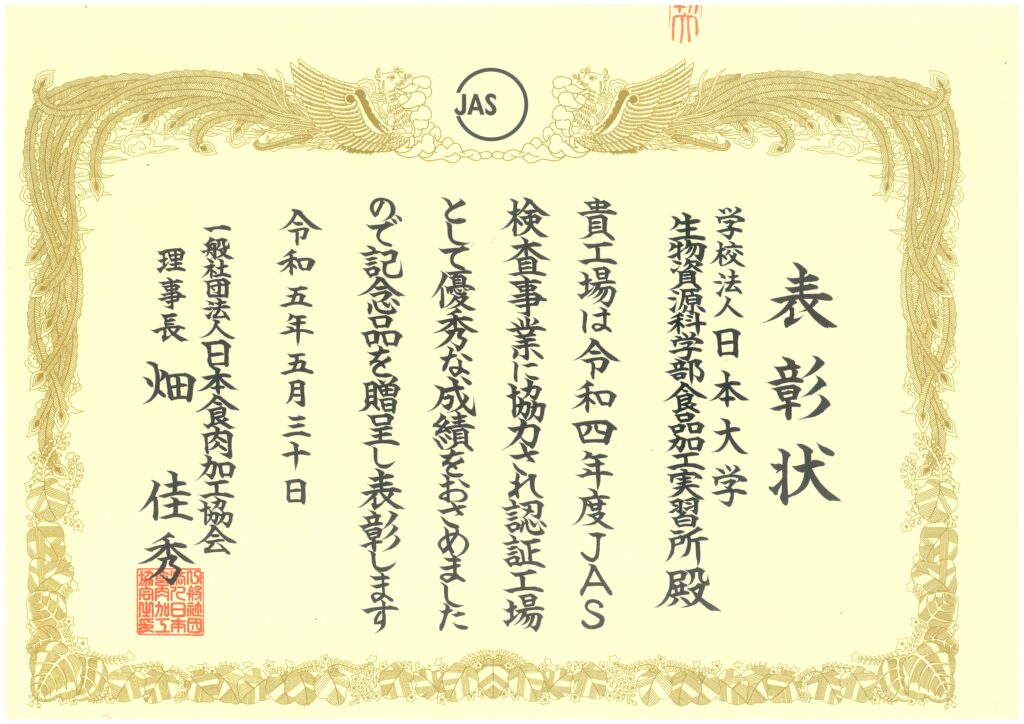 JAS
表彰状
学校法人日本大学
生物資源科学部食品加工実習所殿
貴工場は令和四年度JAS
検査事業に協力され認証工場
として優秀な成績をおさめました
ので記念品を贈呈し表彰します
令和五年五月三十日
一般社団法人日本食肉加工協会
理事長 畑 佳秀